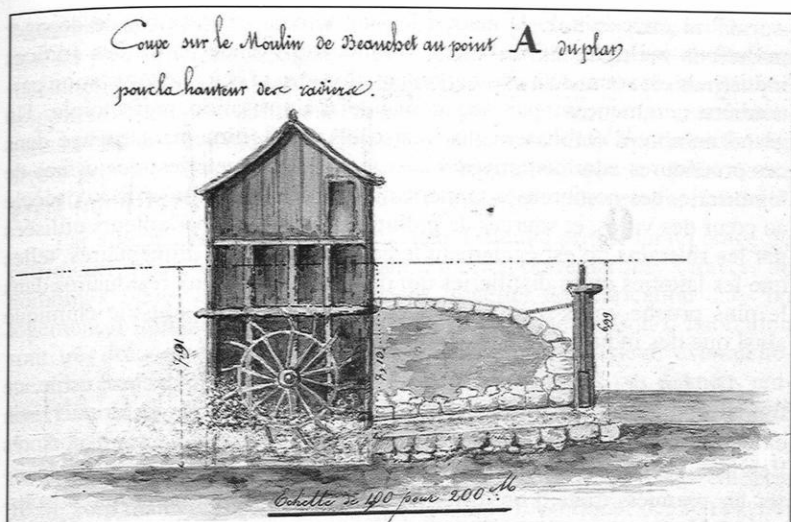 Coupe sur le Moulin de Beauchet au point A du plan
pour la hauteur des radiers
7,91
7,10
6,99
Echelle de 400 pour 200 M